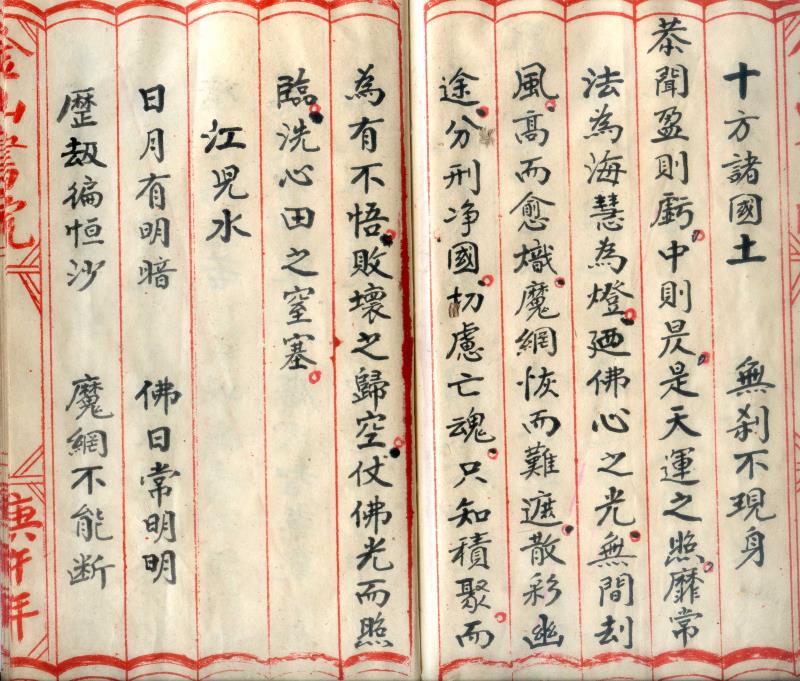 十方諸國土　無刹不現身
恭聞盈則虧中則昃是天運之照靡常
法為海慧為燈廼佛心之光無間刦
風高而愈熾魔網恢而難遮散彩幽
途分刑净國切慮亡魂只知積聚而
為有不悟敗壞之歸空仗佛光而照
臨洗心田之窒塞
江児水
日月有明暗　佛日常明明
歷刼徧恒沙　魔網不能断
金山書院
庚午年